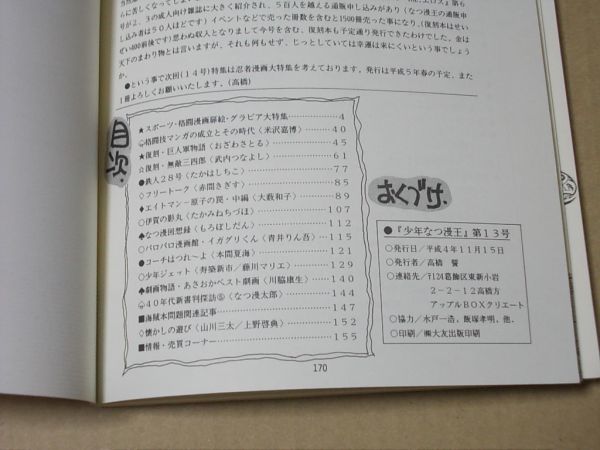 号が２、３の成人向け雑誌に大きく紹介され、５百人を越える通販申し込みがあり（なつ漫王の通販申
し込み者は５０人ほどです）イベントなどで売った冊数を含むと1500冊売った事になり、（復刻本はせい
ぜい400前後です）思わぬ収入となりまして今号を含む、復刻本も予定通り発行できたわけでした。金は
天下のまわり物とは言いますが、それも何もせず、じっとしていては幸運は来にくいという事でしょう
か。
●という事で次回（１４号）特集は忍者漫画大特集を考えております。発行は平成５年春の予定、また
１冊よろしくお願いいたします。（高橋）
目次
★スポーツ・格闘漫画扉絵・グラビア大特集……4
♤格闘技マンガの成立とその時代〈米沢嘉博〉……40
★復刻・巨人軍物語〈おざわさとる〉……45
☆復刻・無敵三四郎〈武内つなよし〉……61
●鉄人２８号〈たかはしちこ〉……77
◇フリートーク〈赤間きぎす〉……85
♦エイトマン－原子の罠・中編〈大薮和子〉……89
○伊賀の影丸〈たかみねちづほ〉……107
♠なつ漫回想録〈もろぼしだん〉……112
♧バロバロ漫画館・イガグリくん〈青井りん吾〉……115
●コーチはつれ～よ〈本間夏海〉……121
○少年ジェット〈寿築新市／藤川マリエ〉……129
♠劇画物語・あさおかベスト劇画〈川脇康生〉……140
♤４０年代新書判探訪⑤〈なつ漫太郎〉……144
■海賊本問題関連記事……147
◇懐かしの遊び〈山川三太／上野啓典〉……152
■情報・売買コーナー……155
おくづけ
●『少年なつ漫王』第１３号
○発行日／平成４年１１月１５日
○発行者／高橋　誓
○連絡先／〒124葛飾区東新小岩
２－２－１２高橋方
アップルBOXクリエート
○協力／水戸一浩、飯塚孝明、他．
○印刷／㈱大友出版印刷
170